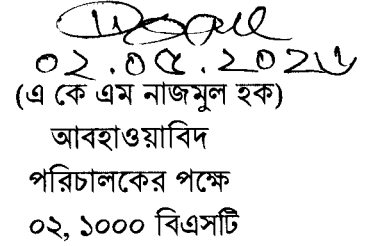 ০২.০৫.২০২৬
(এ কে এম নাজমুল হক)
আবহাওয়াবিদ
পরিচালকের পক্ষে
০২, ১০০০ বিএসটি